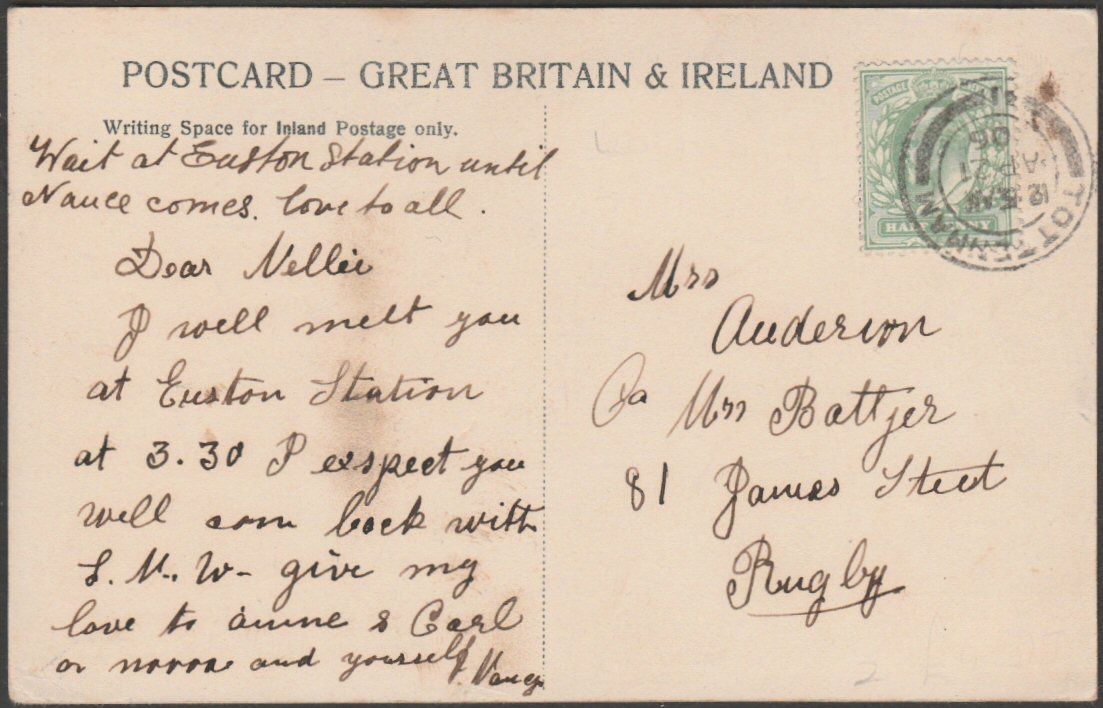 POSTCARD – GREAT BRITAIN & IRELAND
Writing Space for Inland Postage only.
Wait at Euston Station until
Nance comes. love to all.
Dear Nellie
I well meet you
at Euston Station
at 3.30 I exspect you
well com back with
L. N. W- give my
love to annie & Carl
or norra and yourself
Nancy
Mrs
Anderson
Ca Mrs Battjer
81 James Steet
Rugby
POSTAGE
HALF PENNY
TOTTENHAM
12 15 AM
AP 21
06